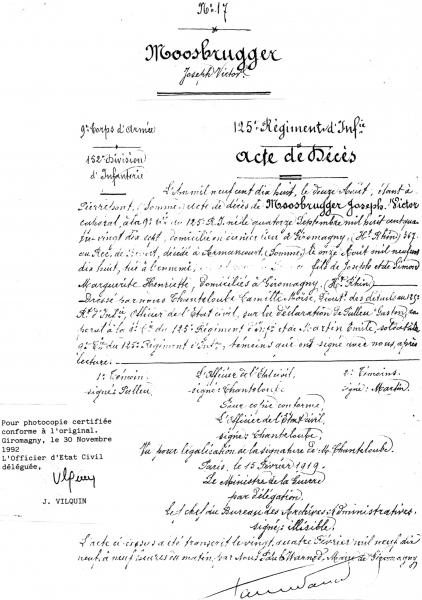 No. 17
Moosbrugger
Joseph Victor.
9e Corps d'Armée
125e Régiment d'Infie
152e Division
d'Infanterie
Acte de Décès
L'An mil neuf cent dix huit, le douze Août, étant à
Pierrepont (Somme) Acte de décès de Moosbrugger Joseph, Victor
caporal, à la 9e Cie du 125e R.I. né le quatorze Septembre mil huit cent qua
tre vingt dix sept, domicilié en dernier lieu à Giromagny, (Ht Rhin)
au Rec. de décédé à Armancourt (Somme) le onze Août mil neuf cent
dix huit, tué à l'ennemi, fils de Joseph et de Simon
Marguerite Henriette, Domiciliés à Giromagny, (Ht Rhin)
Dressé par nous Chanteloube Camille Lieut. des détails au 125e
Rt d'Infie Officier de l'Etat civil, sur la déclaration de Gaston, ca
poral à la Cie du 125e Régiment d'Infie et de Martin Emile, soldat à la
9e Cie du 125e Régiment d'Infie, témoins qui ont signé avec nous, après
lecture.
1er Témoin. L'Officier de l'Etat civil 2e Témoins.
signé: signé: Chanteloube signé: Martin.
Pour copie conforme
L'Officier de l'Etat Civil,
signé: Chanteloube,
Vu pour légalisation de la signature de M. Chanteloube.
Paris, le 15 Février 1919.
Le Ministre de la Guerre
par délégation.
Le chef du Bureau des Archives Administratives.
signé: illisible.
L'acte ci-dessus a été transcrit le vingt quatre Février mil neuf dix
neuf, à neuf heures du matin, par Nous Warnod, Maire de Giromagny
Pour photocopie certifiée
conforme à l'original.
Giromagny, le 30 Novembre
1992
L'Officier d'Etat Civil
déléguée,
J. VILQUIN